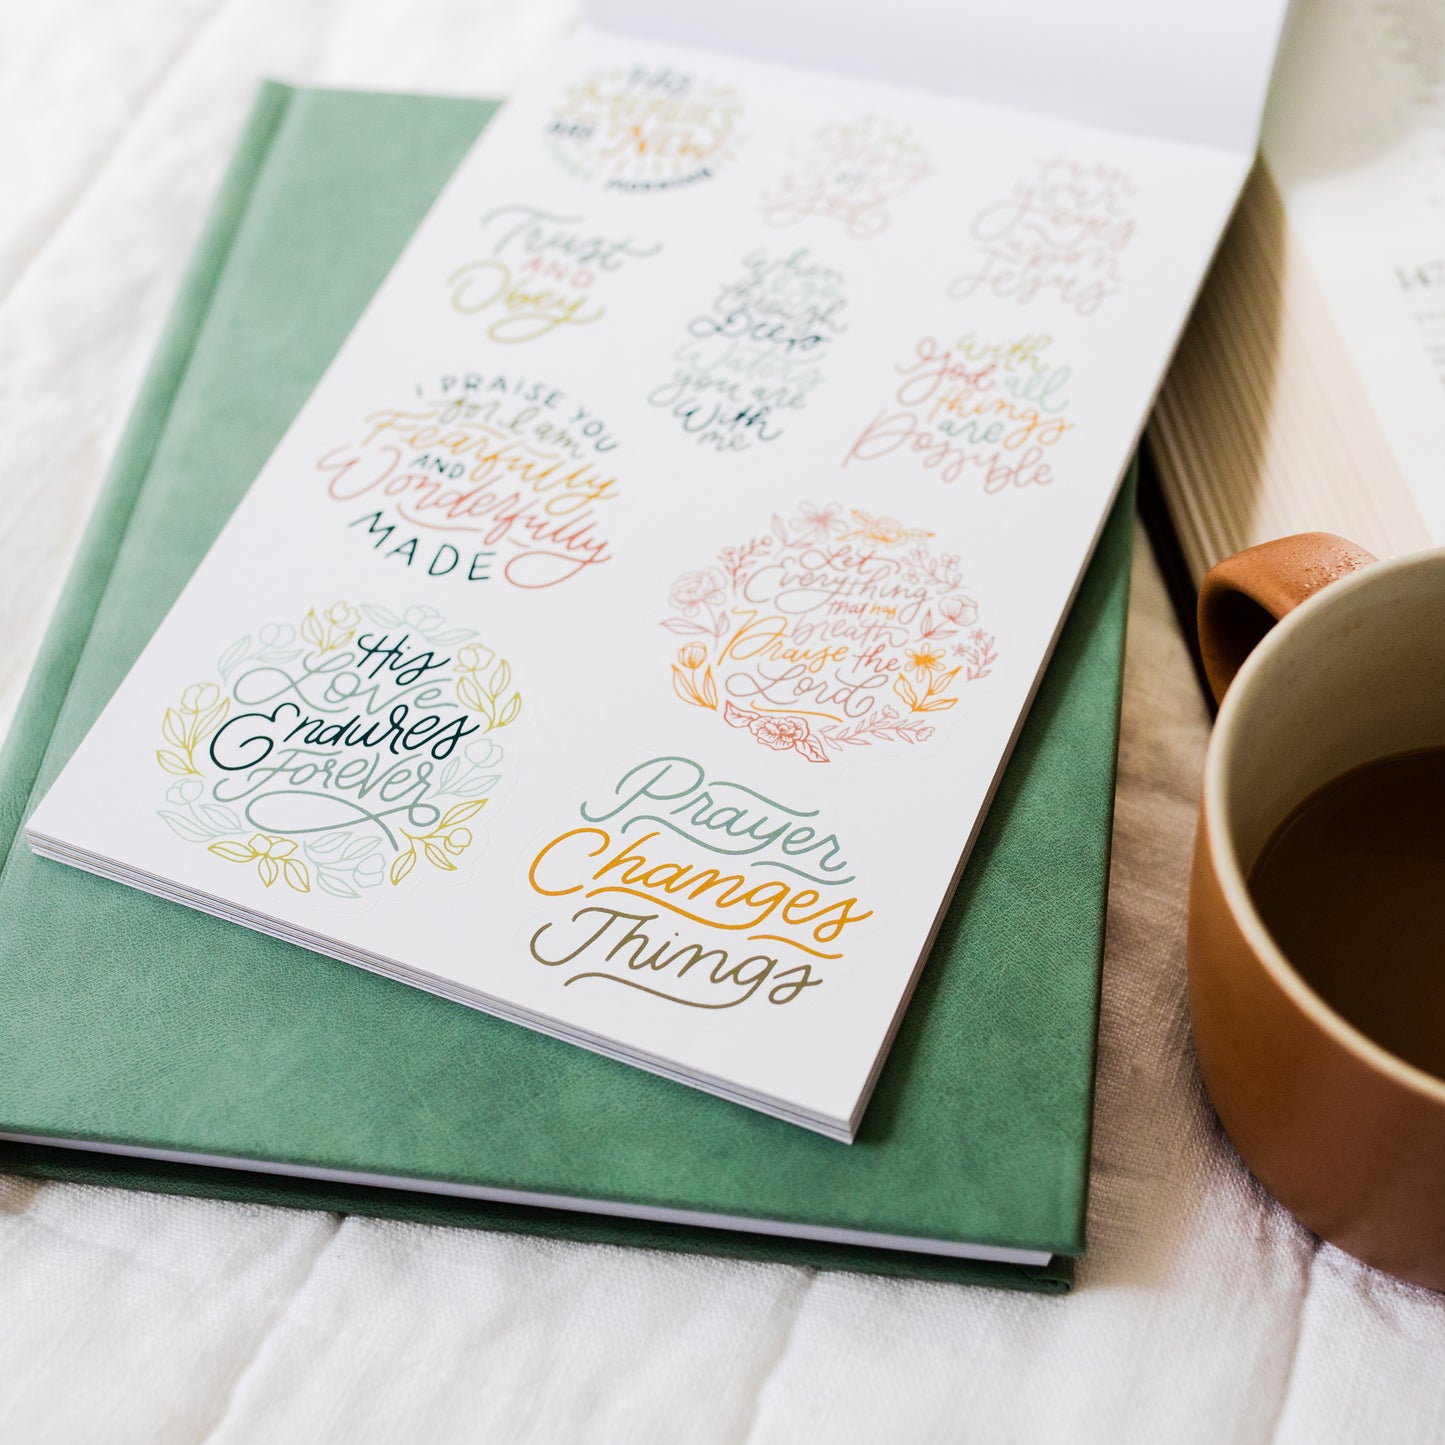 His
Mercies
ARE New
EVERY
MORNING
child
of
God
turn
your
eyes
upon
Jesus
Trust
AND
Obey
When
I go
through
Deep
Waters
you are
With
me
with
God all
things
are
Possible
I PRAISE YOU
for I am
Fearfully
AND
Wonderfully
MADE
Let
Everything
that has
breath
Praise the
Lord
His
Love
Endures
Forever
Prayer
Changes
Things
147